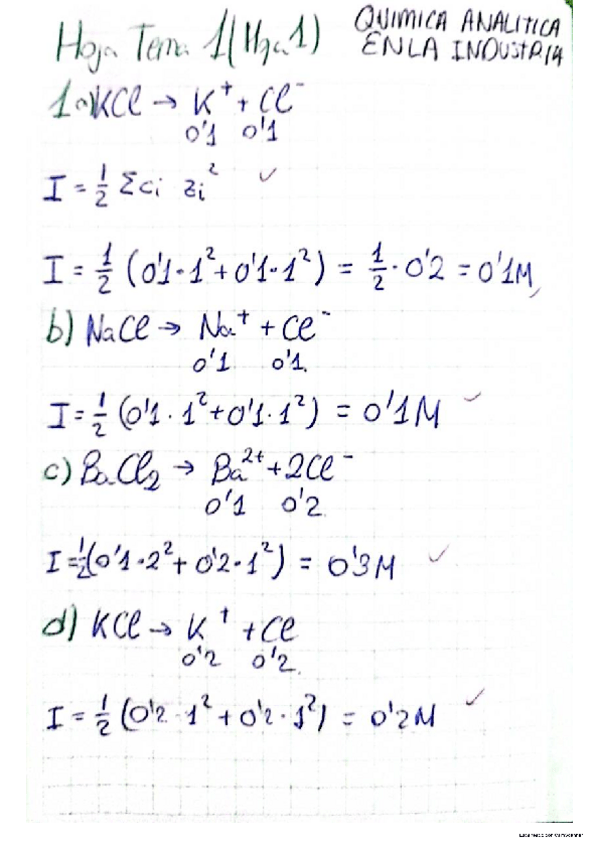 Hoja Tema 1 (Hoja 1)
QUIMICA ANALITICA
EN LA INDUSTRIA
1 a) KCl → K⁺ + Cl⁻
0'1 0'1
I = 1/2 Σci zi² ✓
I = 1/2 (0'1·1² + 0'1·1²) = 1/2 · 0'2 = 0'1M
b) NaCl → Na⁺ + Cl⁻
0'1 0'1.
I = 1/2 (0'1 · 1² + 0'1 · 1²) = 0'1M ✓
c) BaCl₂ → Ba²⁺ + 2Cl⁻
0'1 0'2
I = 1/2 (0'1·2² + 0'2·1²) = 0'3M ✓
d) KCl → K⁺ + Cl
0'2 0'2.
I = 1/2 (0'2 · 1² + 0'2 · 1²) = 0'2M ✓